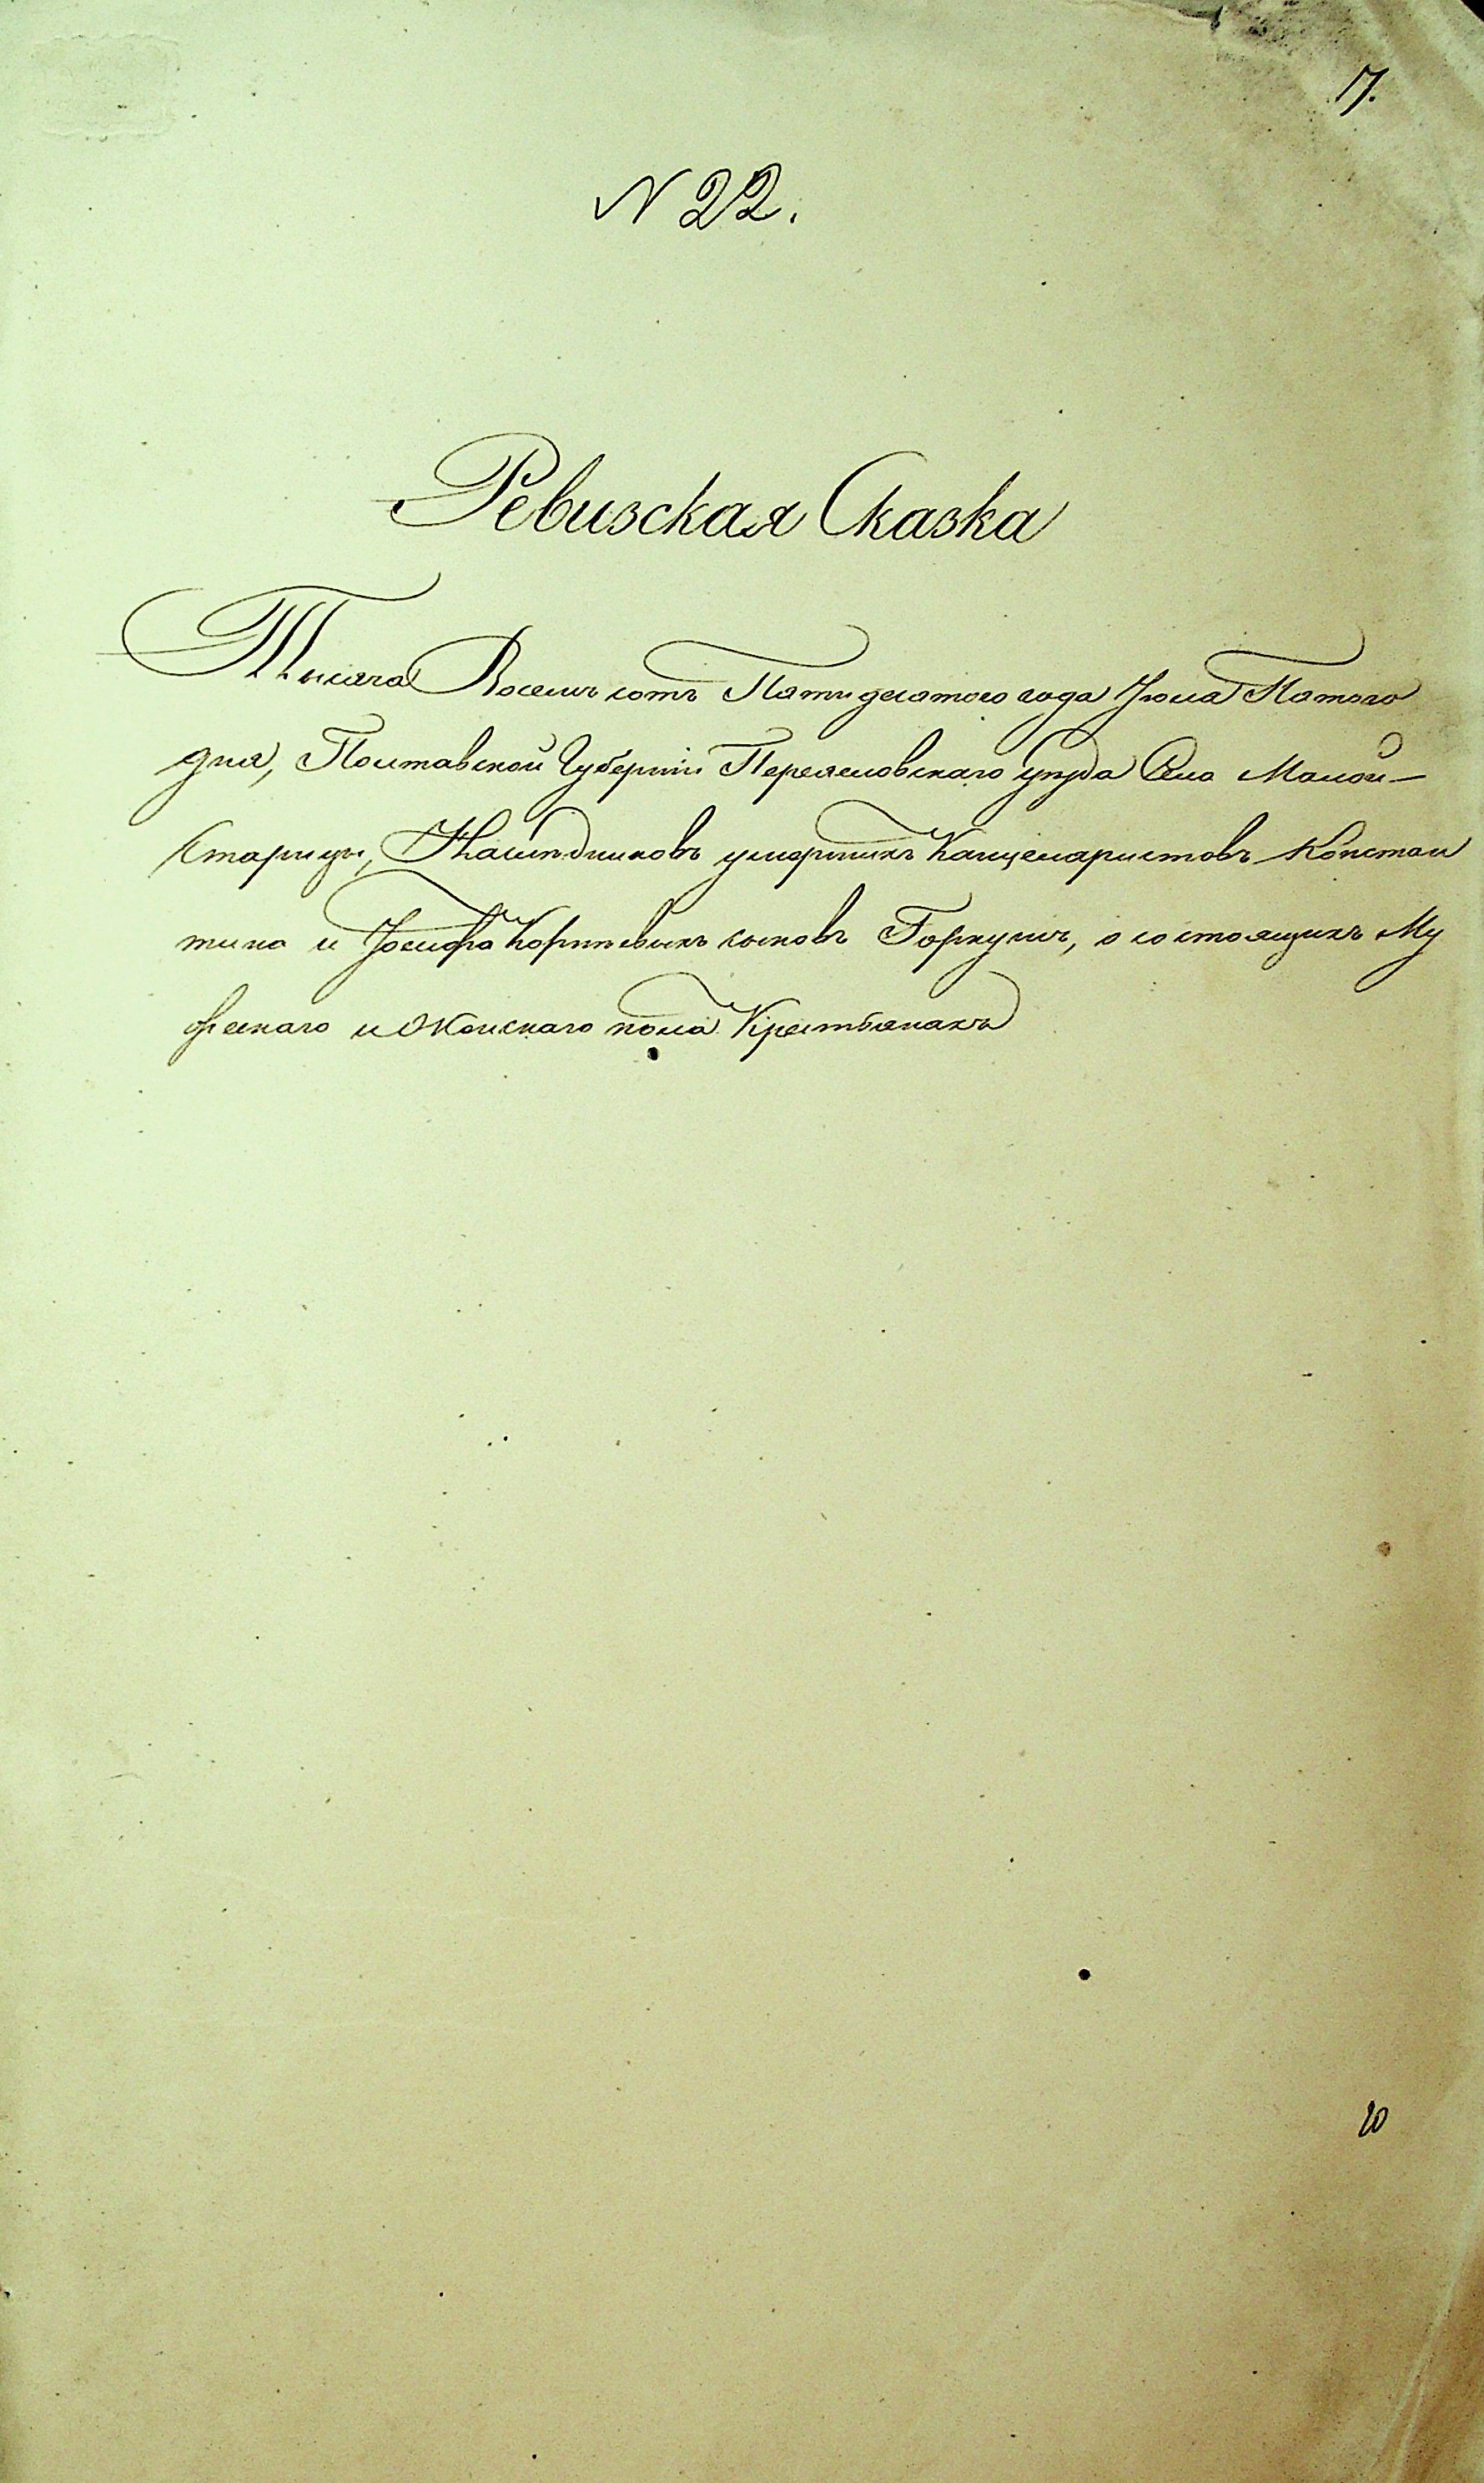 17.
N 22.
Ревизская Сказка
Тысяча Восемь сотъ Пятидесятого года Іюля Пятого
дня, Полтавской Губерніи Переясловскаго уѣзда Села Малой-
Старицы, Наслѣдниковъ умершихъ Канцеляристовъ Констан
тина и Іосифа Корнѣевыхъ сыновъ Горкушъ, о состоящихъ Му
жескаго и Женскаго пола Крестьянахъ